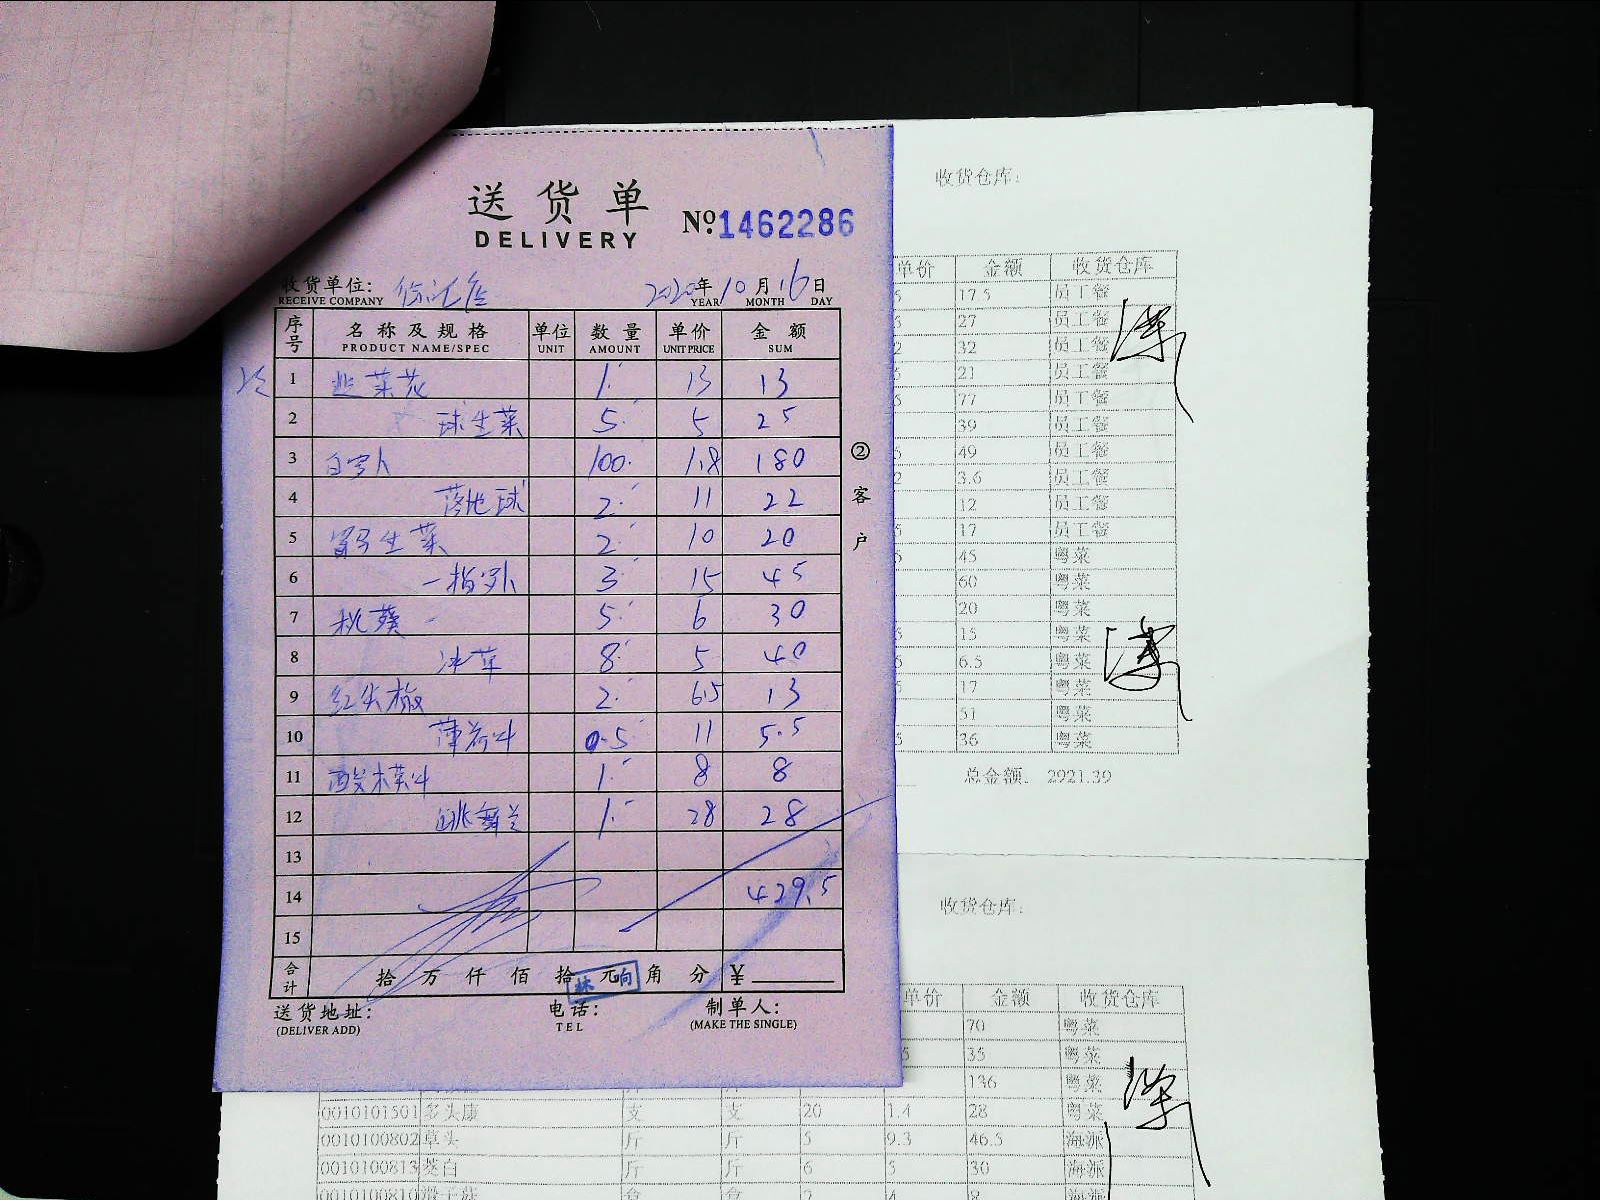 送货单
DELIVERY
№ 1462286
收货单位:
RECEIVE COMPANY
2020年10月16日
YEAR MONTH DAY
序号 名称及规格 单位 数量 单价 金额
PRODUCT NAME/SPEC UNIT AMOUNT UNIT PRICE SUM
1 韭菜花 1 13 13
2 球生菜 5 5 25
3 100 1.8 180
4 落地球 2 11 22
5 罗马生菜 2 10 20
6 3 15 45
7 秋葵 5 6 30
8 冰草 8 5 40
9 红尖椒 2 6.5 13
10 薄荷叶 0.5 11 5.5
11 酸模叶 1 8 8
12 跳舞兰 1 28 28
13
14 429.5
15
合计 拾万仟佰拾元角分 ¥
送货地址: 电话: 制单人:
(DELIVER ADD) TEL (MAKE THE SINGLE)
②客户
收货仓库:
单价 金额 收货仓库
17.5 员工餐
27 员工餐
32 员工餐
21 员工餐
77 员工餐
39 员工餐
49 员工餐
3.6 员工餐
12 员工餐
17 员工餐
45 粤菜
60 粤菜
20 粤菜
15 粤菜
6.5 粤菜
17 粤菜
51 粤菜
36 粤菜
总金额: 2921.39
收货仓库:
单价 金额 收货仓库
70 粤菜
35 粤菜
136 粤菜
0010101501 多头康 支 支 20 1.4 28 粤菜
0010100802 草头 斤 斤 5 9.3 46.5 海派
0010100813 茭白 斤 斤 6 5 30 海派